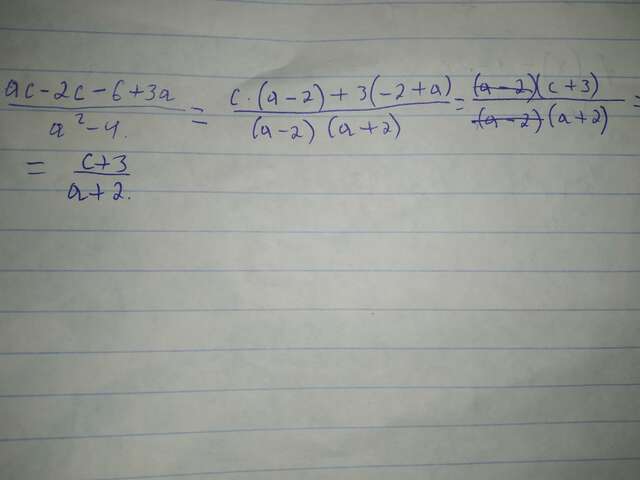 (ac-2c-6+3a)/(a²-4.) = (c·(a-2)+3(-2+a))/((a-2)(a+2)) = ((a-2)(c+3))/((a-2)(a+2)) =
= (c+3)/(a+2.)